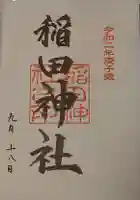 令和二年庚子歳
稲田神社
九月十八日